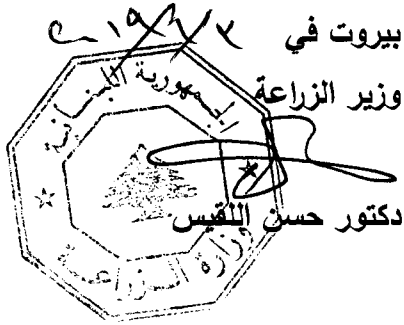 بيروت في
وزير الزراعة
دكتور حسن اللقيس
الجمهورية اللبنانية
وزارة الزراعة